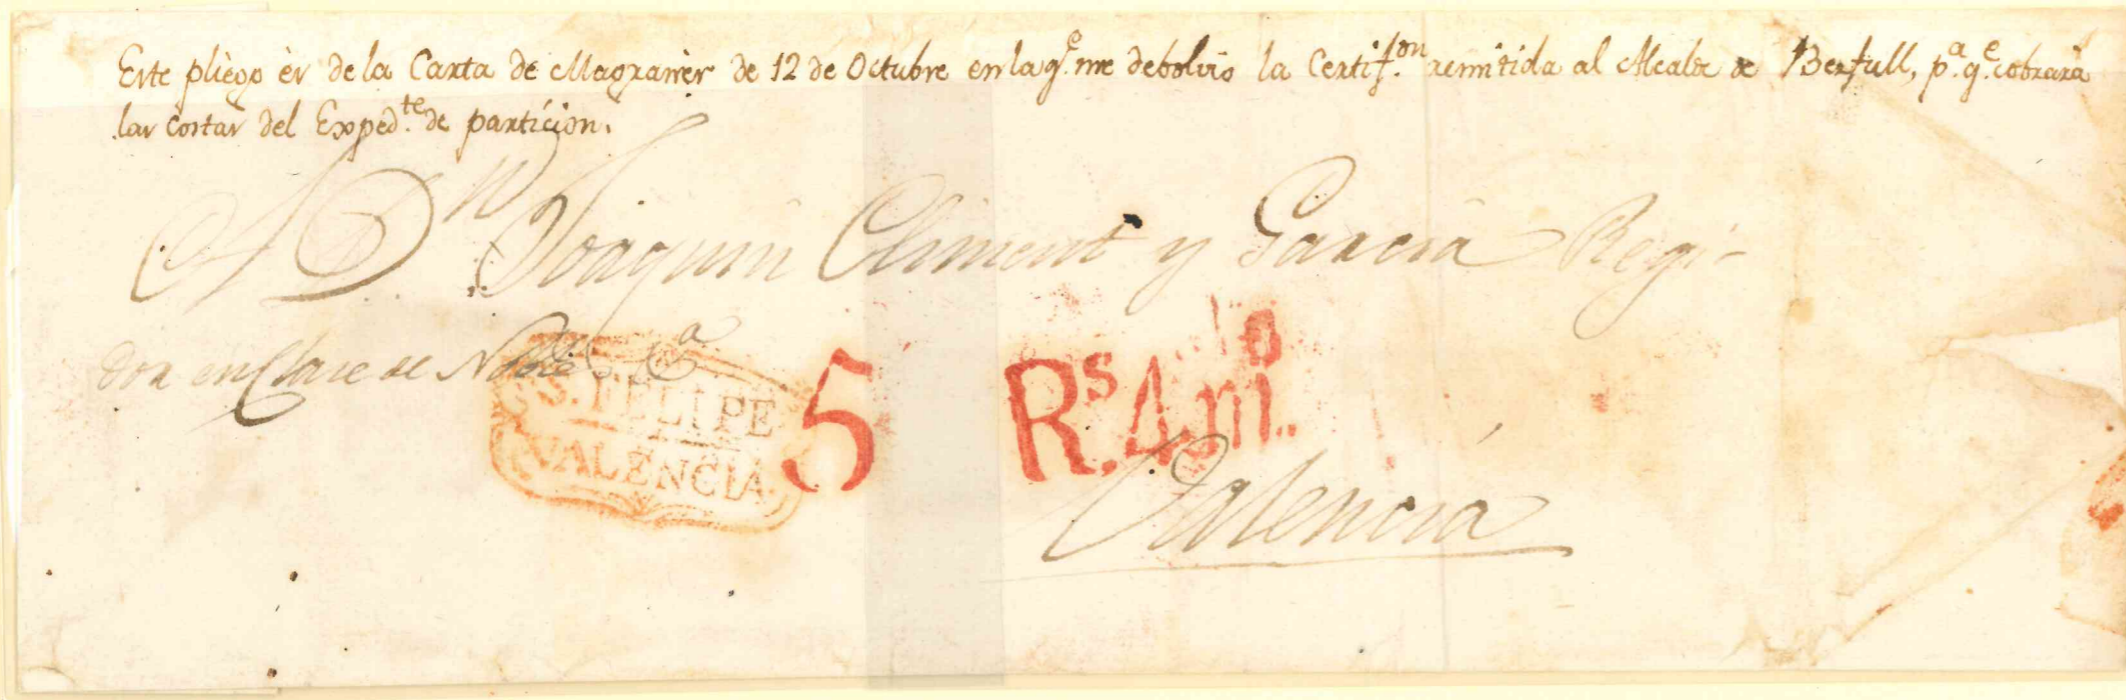 Este pliego es de la Carta de Magraner de 12 de Octubre en la q.e me debolvio la Certif.on remitida al Alcalde de Benfull, p.a q.e cobrara
las costas del Exped.te de particion.
A Dn Joaquin Climent y Garcia Regi-
dor en Clase de Noble &a
S. FELIPE
VALENCIA.
5 Rs. 4 m.
Valencia